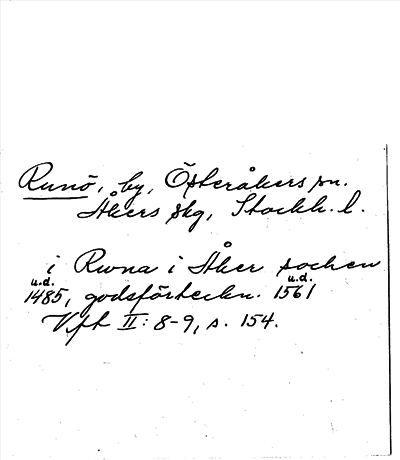 Runö, by, Österåkers sn.
Åkers skg, Stockh. l.
i Rwna i Åker sochen
u.d. u.d.
1485, godsförteckn. 1561
Vft II: 8-9, s. 154.